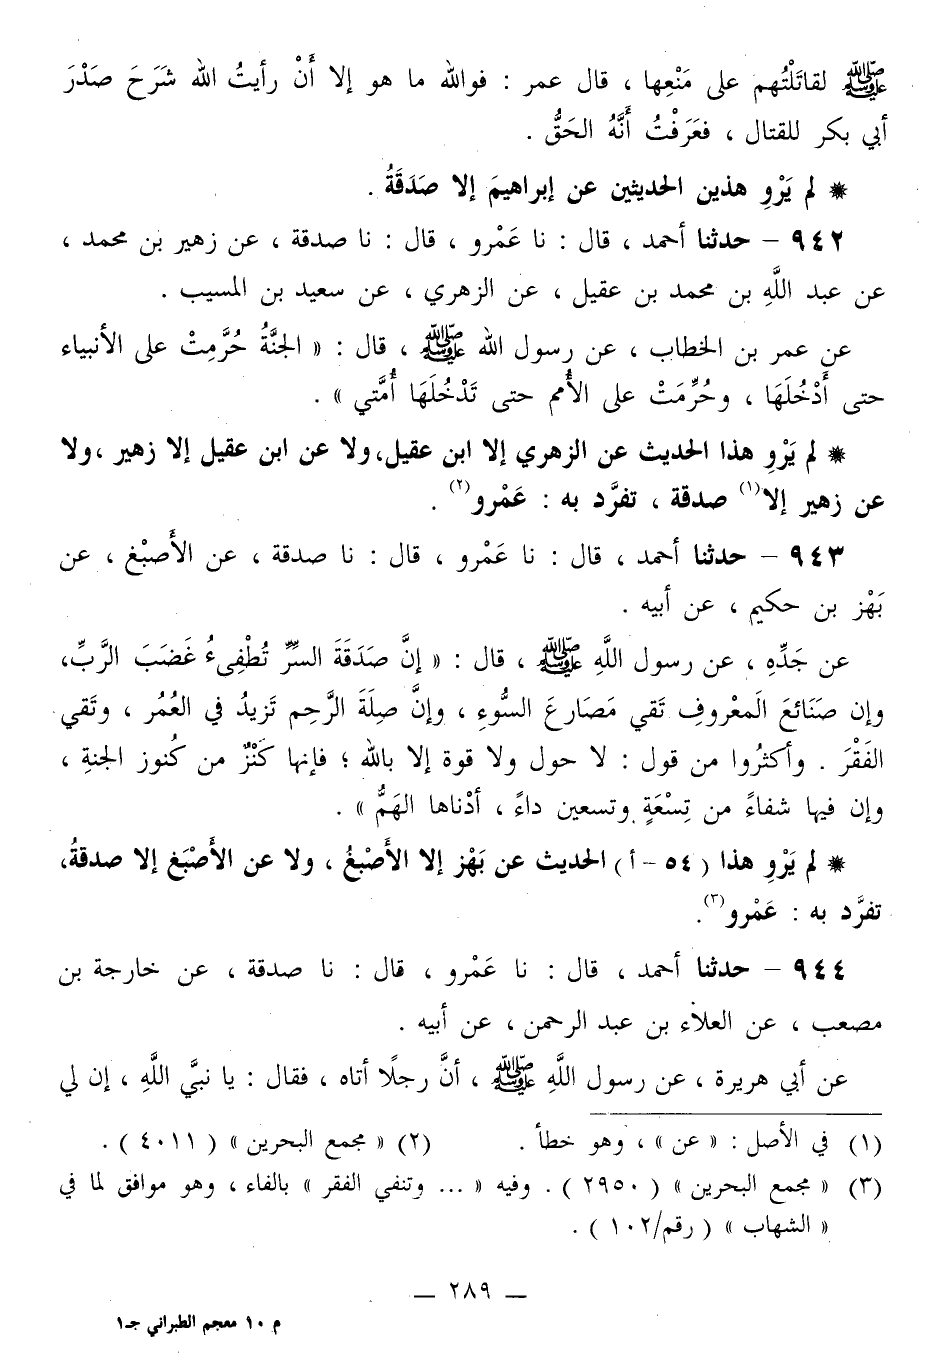 ﷺ لقاتَلْتُهم على مَنْعِها ، قال عمر : فوالله ما هو إلا أَنْ رأيتُ الله شَرَحَ صَدْرَ
أبي بكر للقتال ، فعَرَفْتُ أَنَّهُ الحَقُّ .
* لم يَرْوِ هذين الحديثين عن إبراهيمَ إلا صَدَقَةُ .
٩٤٢ – حدثنا أحمد ، قال : نا عَمْرو ، قال : نا صدقة ، عن زهير بن محمد ،
عن عبد اللَّهِ بن محمد بن عقيل ، عن الزهري ، عن سعيد بن المسيب .
عن عمر بن الخطاب ، عن رسول الله ﷺ ، قال : « الجنَّةُ حُرِّمتْ على الأنبياء
حتى أَدْخُلَهَا ، وحُرِّمَتْ على الأُمم حتى تَدْخُلَهَا أُمَّتي » .
* لم يَرْوِ هذا الحديث عن الزهري إلا ابن عقيل، ولا عن ابن عقيل إلا زهير ، ولا
عن زهير إلا(١) صدقة ، تفرَّد به : عَمْرو(٢) .
٩٤٣ – حدثنا أحمد ، قال : نا عَمْرو ، قال : نا صدقة ، عن الأَصبْغ ، عن
بَهْز بن حكيم ، عن أبيه .
عن جَدِّهِ ، عن رسول اللَّهِ ﷺ ، قال : « إنَّ صَدَقَةَ السرِّ تُطْفِىءُ غَضَبَ الرَّبِّ،
وإن صَنَائعَ الَمعْروفِ تَقي مَصَارعَ السوُّءِ ، وإنَّ صِلَةَ الرَّحِم تَزيدُ في العُمُر ، وتَقي
الفَقْرَ . وأكثرُوا من قول : لا حول ولا قوة إلا بالله ؛ فإنها كَنْزٌ من كُنوز الجنةِ ،
وإن فيها شفاءً من تِسْعَةٍ وتسعين داءً ، أدْناها الهَمُّ » .
* لم يَرْوِ هذا ( ٥٤ – أ ) الحديث عن بَهْز إلا الأَصْبغُ ، ولا عن الأَصْبَغ إلا صدقةُ،
تفرَّد به : عَمْرو(٣).
٩٤٤ – حدثنا أحمد ، قال : نا عَمْرو ، قال : نا صدقة ، عن خارجة بن
مصعب ، عن العلاء بن عبد الرحمن ، عن أبيه .
عن أبي هريرة ، عن رسول اللَّهِ ﷺ ، أنَّ رجلًا أتاه ، فقال : يا نبيَّ اللَّهِ ، إن لي
(١) في الأصل : « عن » ، وهو خطأ . (٢) « مجمع البحرين » ( ٤٠١١ ) .
(٣) « مجمع البحرين » ( ٢٩٥٠ ) . وفيه « ... وتنفي الفقر » بالفاء ، وهو موافق لما في
« الشهاب » ( رقم/١٠٢ ) .
— ٢٨٩ —
م ١٠ معجم الطبراني جـ١